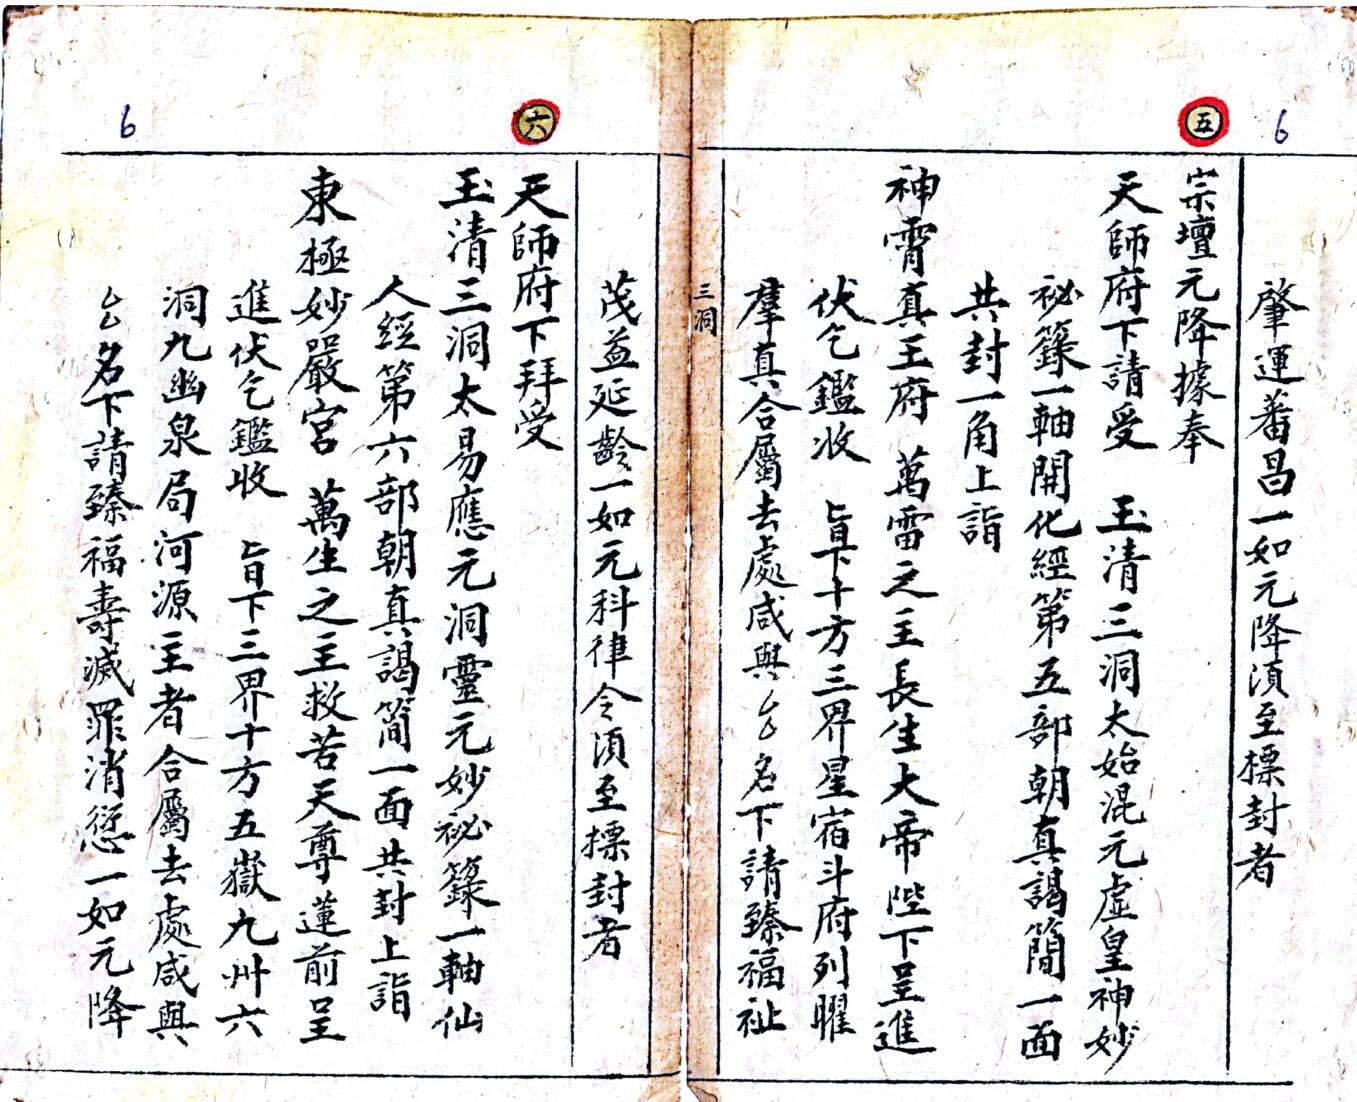 6
肇運蕃昌一如元降湏至標封者
五
宗壇元降據奉
天師府下請受 玉清三洞太始混元虛皇神妙
祕籙一軸開化經第五部朝真謁簡一面
共封一角上詣
神霄真王府 萬雷之主長生大帝陛下呈進
伏乞鑑收 旨下十方三界星宿斗府列曜
羣真合屬去處咸與厶名下請臻福祉
三洞
茂益延齡一如元科律令湏至標封者
六
天師府下拜受
玉清三洞太易應元洞靈元妙祕籙一軸仙
人經第六部朝真謁簡一面共封上詣
東極妙嚴宮 萬生之主救苦天尊蓮前呈
進伏乞鑑收 旨下三界十方五嶽九州六
洞九幽泉局河源主者合屬去處咸與
厶名下請臻福壽滅罪消愆一如元降
6